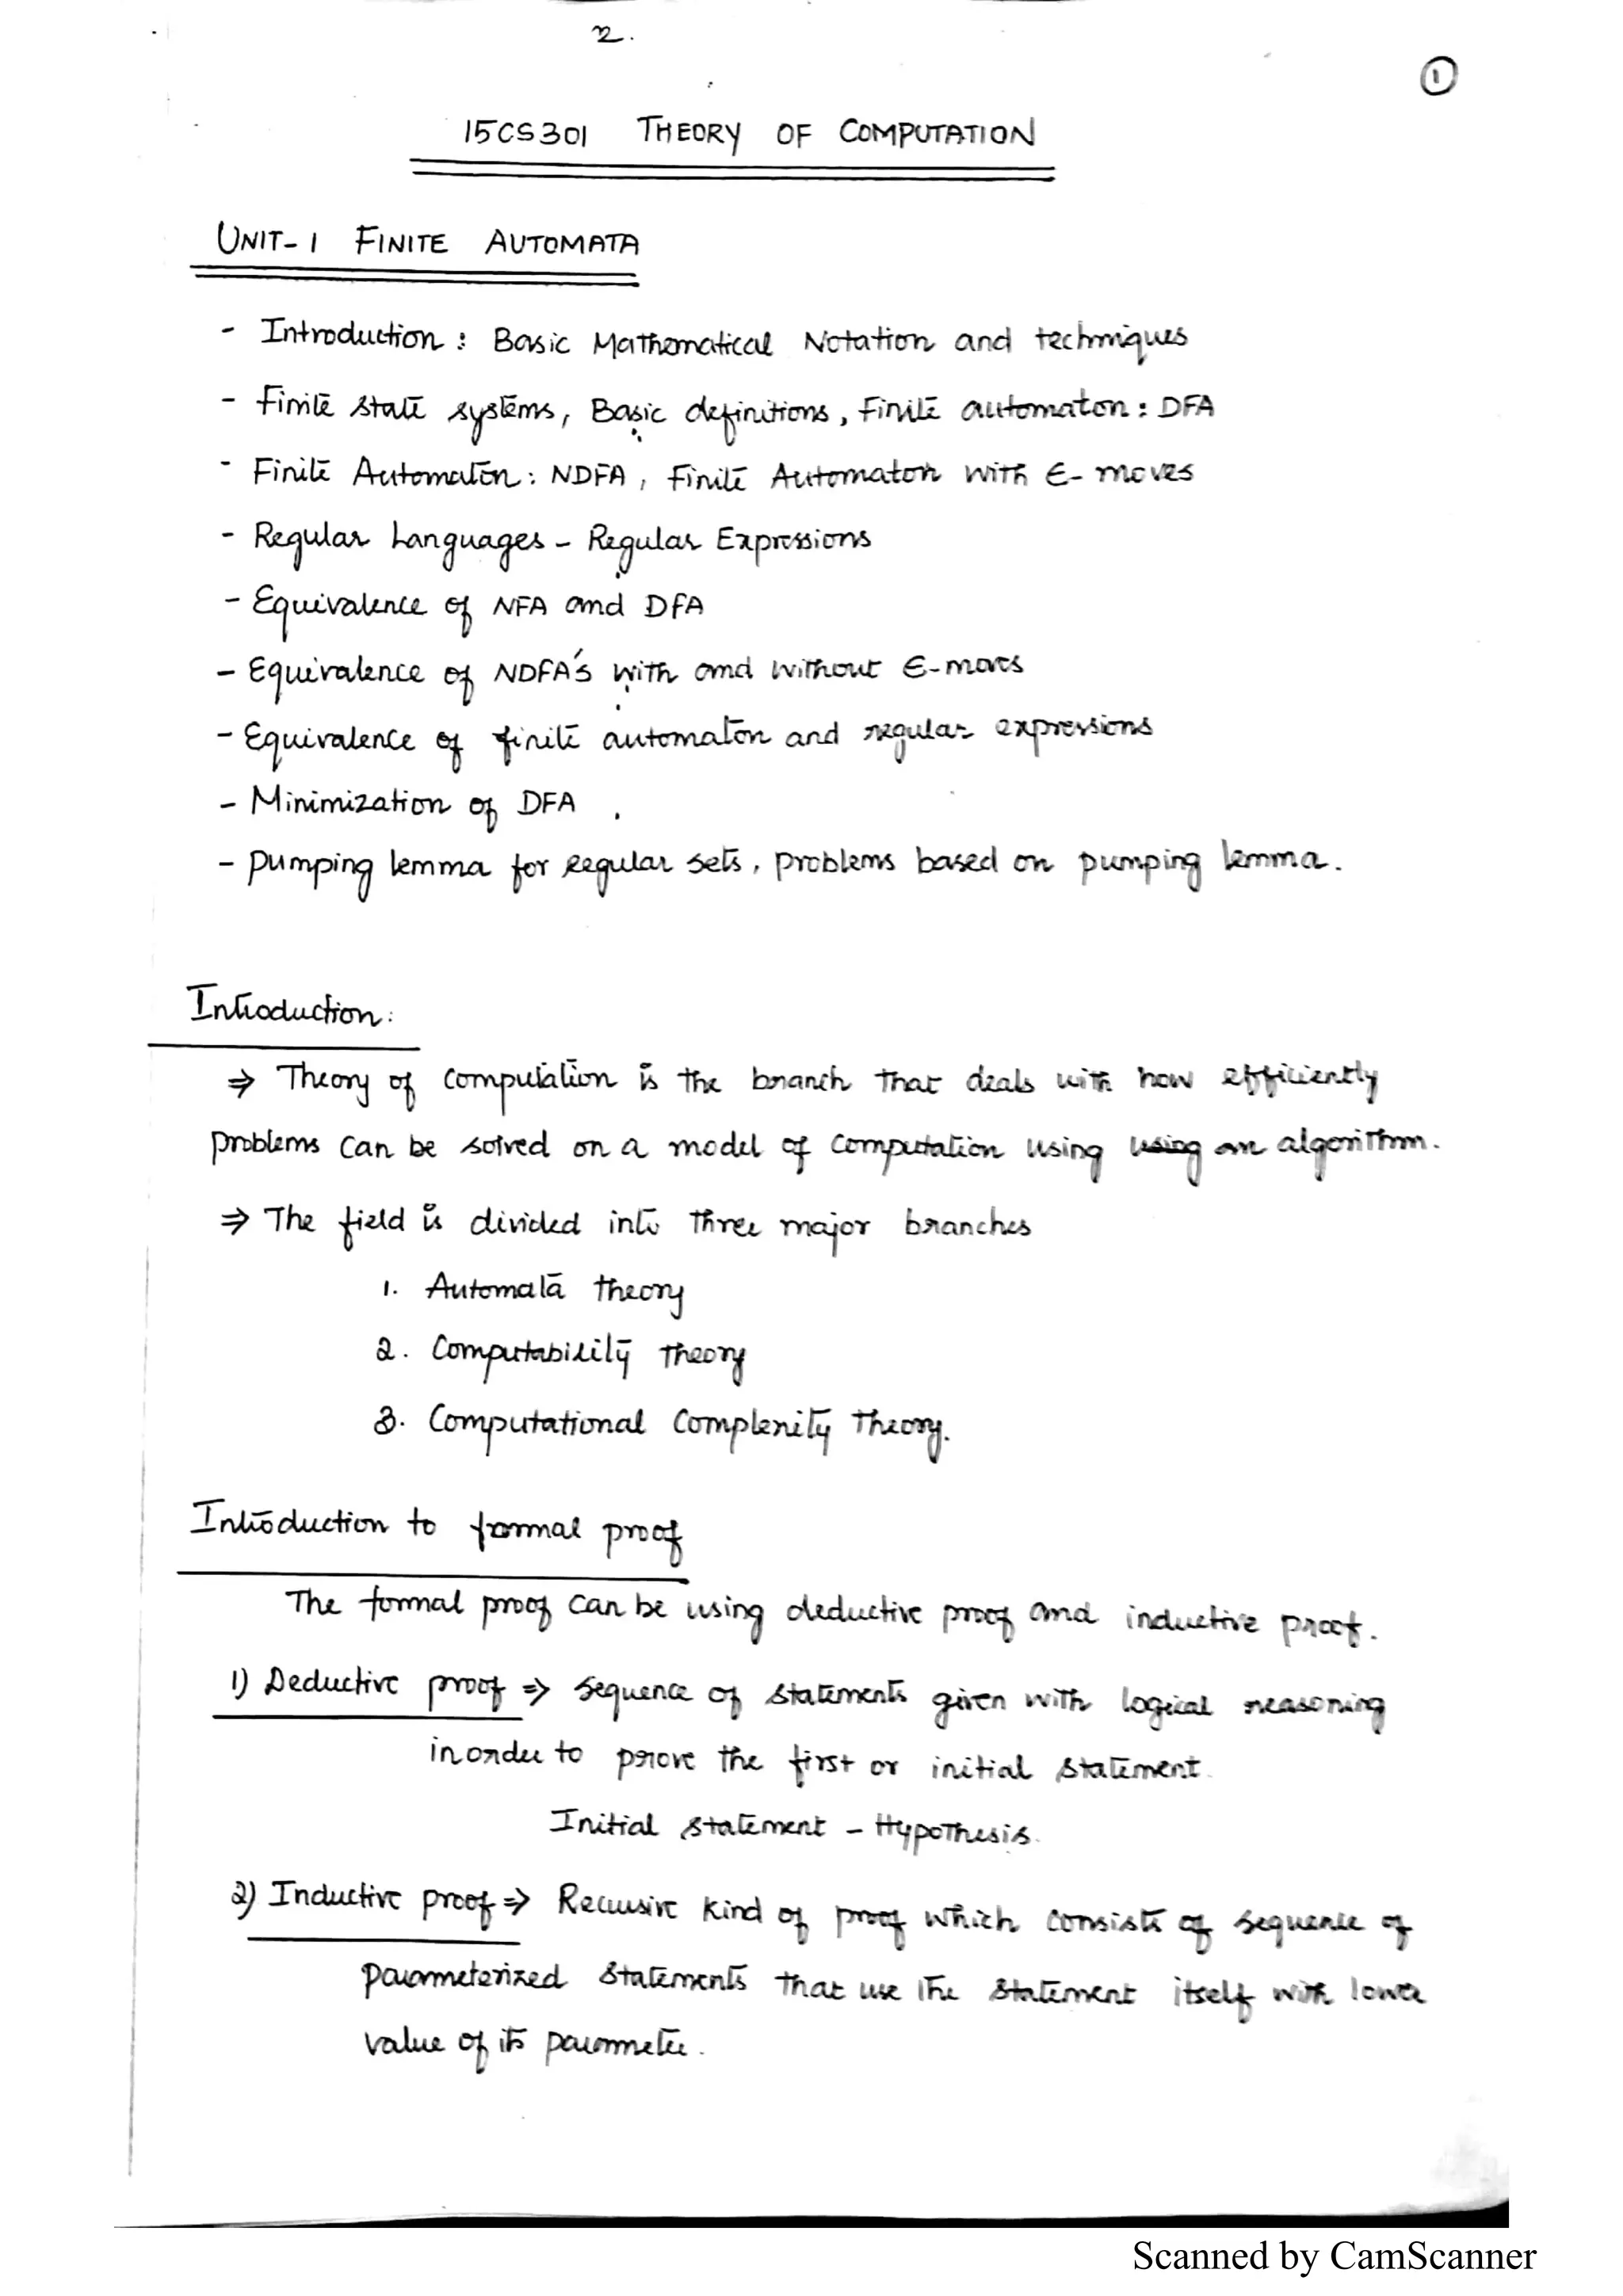 2.
1
15CS301 THEORY OF COMPUTATION
UNIT-1 FINITE AUTOMATA
- Introduction : Basic Mathematical Notation and techniques
- Finite state systems, Basic definitions, Finite automaton : DFA
- Finite Automaton : NDFA, Finite Automaton with ϵ- moves
- Regular Languages - Regular Expressions
- Equivalence of NFA and DFA
- Equivalence of NDFA's with and without ϵ-moves
- Equivalence of finite automaton and regular expressions
- Minimization of DFA .
- Pumping lemma for regular sets, problems based on pumping lemma.
Introduction:
⇒ Theory of computation is the branch that deals with how efficiently
problems can be solved on a model of computation using using an algorithm.
⇒ The field is divided into three major branches
1. Automata theory
2. Computability theory
3. Computational Complexity theory.
Introduction to formal proof
The formal proof can be using deductive proof and inductive proof.
1) Deductive proof ⇒ sequence of statements given with logical reasoning
inorder to prove the first or initial statement.
Initial statement - Hypothesis.
2) Inductive proof ⇒ Recursive kind of proof which consists of sequence of
parameterized statements that use the statement itself with lower
value of its parameter.
Scanned by CamScanner